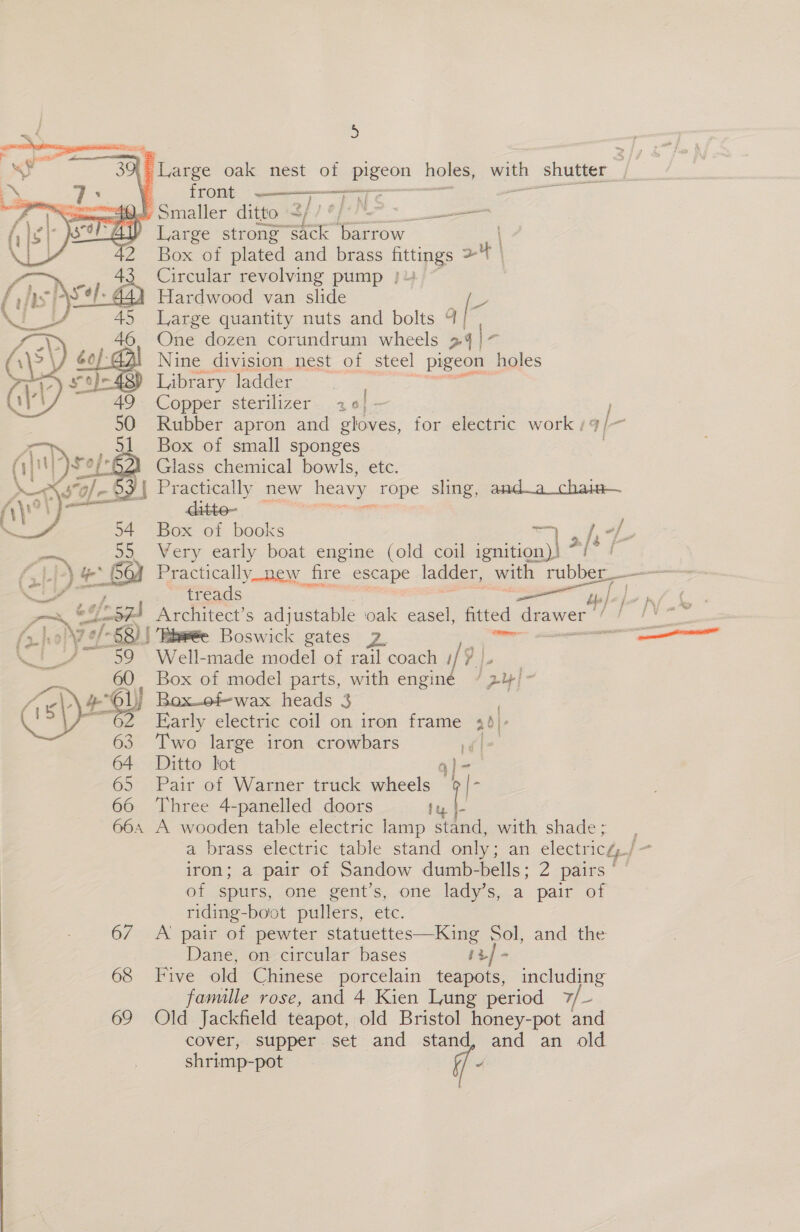 5
39 Large oak nest of pigeon holes, with shutter
front
40 Smaller ditto
41 Large strong sack barrow
42 Box of plated and brass fittings
43 Circular revolving pump
44 Hardwood van slide
45 Large quantity nuts and bolts
46 One dozen corundrum wheels
47 Nine division nest of steel pigeon holes
48 Library ladder
49 Copper sterilizer
50 Rubber apron and gloves, for electric work
51 Box of small sponges
52 Glass chemical bowls, etc.
53 Practically new heavy rope sling, and a chain
ditto
54 Box of books
55 Very early boat engine (old coil ignition)
56 Practically new fire escape ladder, with rubber
treads
57 Architect's adjustable oak easel, fitted drawer
58 Three Boswick gates 2
59 Well-made model of rail coach
60 Box of model parts, with engine
61 Box of wax heads 3
62 Early electric coil on iron frame
63 Two large iron crowbars
64 Ditto lot
65 Pair of Warner truck wheels
66 Three 4-panelled doors
66A A wooden table electric lamp stand, with shade;
a brass electric table stand only; an electric
iron; a pair of Sandow dumb-bells; 2 pairs
of spurs, one gent's, one lady's, a pair of
riding-boot pullers, etc.
67 A pair of pewter statuettes—King Sol, and the
Dane, on circular bases 12/-
68 Five old Chinese porcelain teapots, including
famille rose, and 4 Kien Lung period 7/-
69 Old Jackfield teapot, old Bristol honey-pot and
cover, supper set and stand, and an old
shrimp-pot